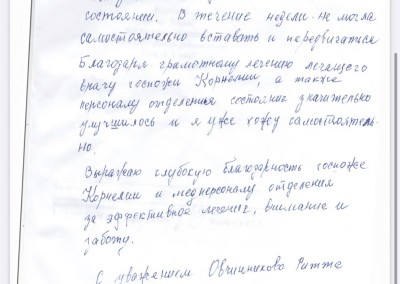 состоянии. В течение недели не могла
самостоятельно вставать и передвигаться
Благодаря грамотному лечению лечащего
врачу госпожи Корнелии, а также
персоналу отделения состояние значительно
улучшилось и я уже хожу самостоятель-
но.
Выражаю глубокую благодарность госпоже
Корнелии и медперсоналу отделения
за эффективное лечение, внимание и
заботу.
С уважением Овчинникова